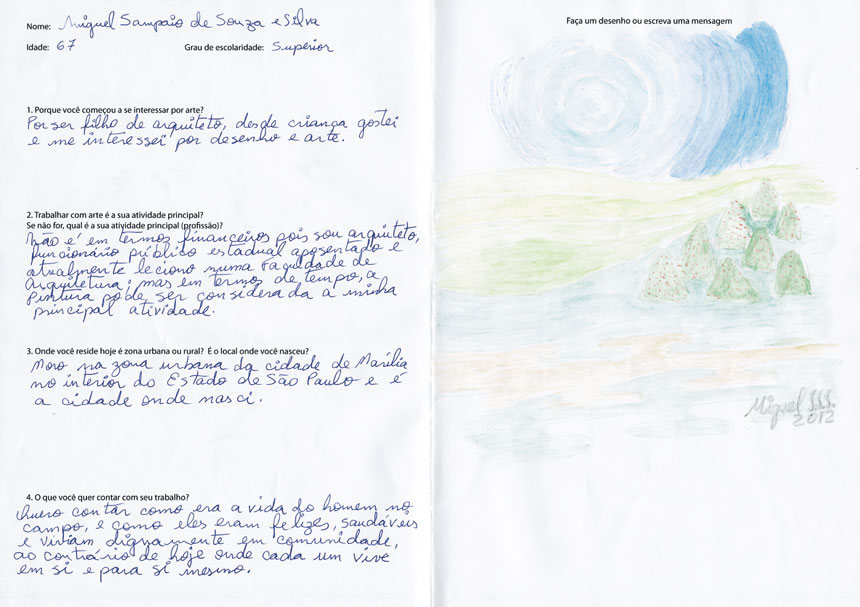 Nome: Miguel Sampaio de Souza e Silva
Idade: 67 Grau de escolaridade: Superior
1. Porque você começou a se interessar por arte?
Por ser filho de arquiteto, desde criança gostei
e me interessei por desenho e arte.
2. Trabalhar com arte é a sua atividade principal?
Se não for, qual é a sua atividade principal (profissão)?
Não é em termos financeiros pois sou arquiteto,
funcionário público estadual aposentado e
atualmente leciono numa Faculdade de
Arquitetura; mas em termos de tempo, a
pintura pode ser considerada a minha
principal atividade.
3. Onde você reside hoje é zona urbana ou rural? É o local onde você nasceu?
Moro na zona urbana da cidade de Marília
no interior do Estado de São Paulo e é
a cidade onde nasci.
4. O que você quer contar com seu trabalho?
Quero contar como era a vida do homem no
campo, e como eles eram felizes, saudáveis
e viviam dignamente em comunidade,
ao contrário de hoje onde cada um vive
em si e para si mesmo.
Faça um desenho ou escreva uma mensagem
Miguel S.S.S.
2012